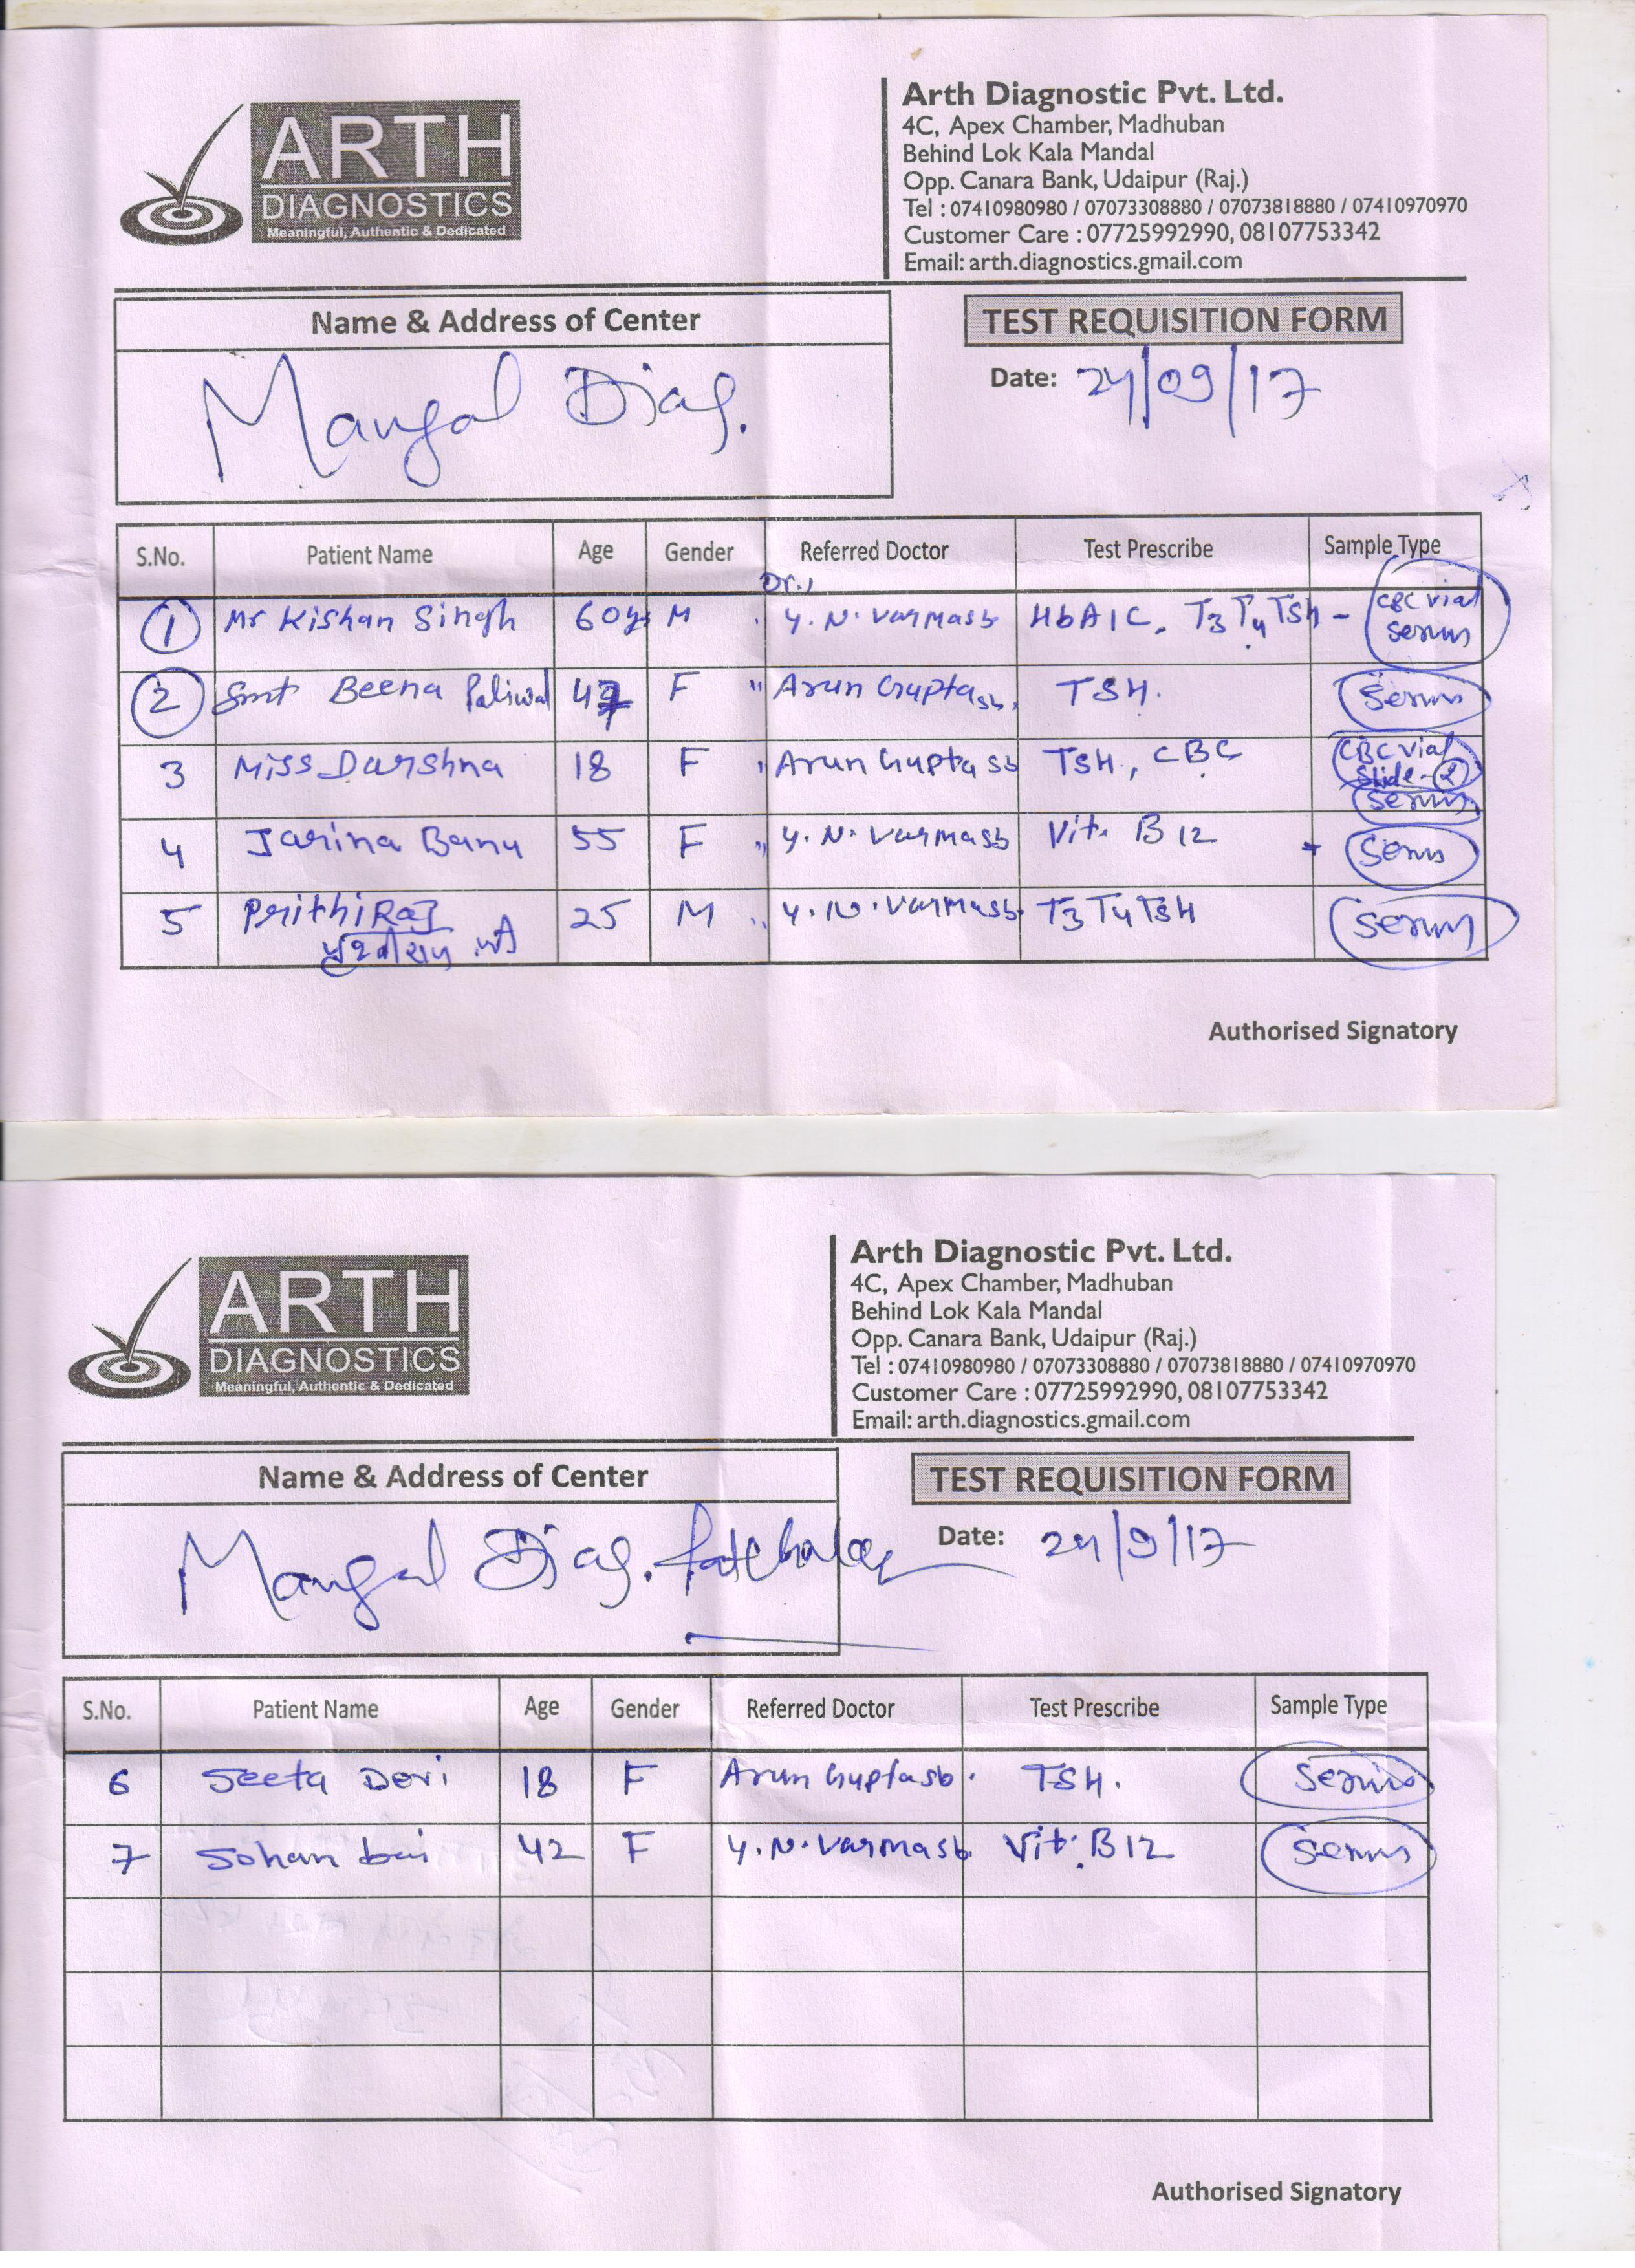 ARTH
DIAGNOSTICS
Meaningful, Authentic & Dedicated
Arth Diagnostic Pvt. Ltd.
4C, Apex Chamber, Madhuban
Behind Lok Kala Mandal
Opp. Canara Bank, Udaipur (Raj.)
Tel : 07410980980 / 07073308880 / 07073818880 / 07410970970
Customer Care : 07725992990, 08107753342
Email: arth.diagnostics.gmail.com
Name & Address of Center
TEST REQUISITION FORM
Mangal Diag.
Date: 24/09/17
S.No. Patient Name Age Gender Referred Doctor Test Prescribe Sample Type
Dr.
1 Mr Kishan Singh 60 M Y. N. Varmasb HbA1C, T3 T4 TSH - CBC vial
serum
2 Smt Beena Paliwal 47 F " Arun Guptasb. TSH. Serum
3 Miss Darshna 18 F " Arun Guptasb TSH, CBC CBC vial
Slide-2
Serum
4 Jarina Banu 55 F " Y. N. Varmasb Vit. B12 Serum
5 PrithiRaj 25 M " Y. N. Varmasb. T3 T4 TSH Serum
Authorised Signatory
ARTH
DIAGNOSTICS
Meaningful, Authentic & Dedicated
Arth Diagnostic Pvt. Ltd.
4C, Apex Chamber, Madhuban
Behind Lok Kala Mandal
Opp. Canara Bank, Udaipur (Raj.)
Tel : 07410980980 / 07073308880 / 07073818880 / 07410970970
Customer Care : 07725992990, 08107753342
Email: arth.diagnostics.gmail.com
Name & Address of Center
TEST REQUISITION FORM
Mangal Diag.
Date: 24/9/17
S.No. Patient Name Age Gender Referred Doctor Test Prescribe Sample Type
6 Seeta Devi 18 F Arun Guptasb. TSH. Serum
7 Sohan bai 42 F Y. N. Varmasb. Vit. B12 Serum
Authorised Signatory